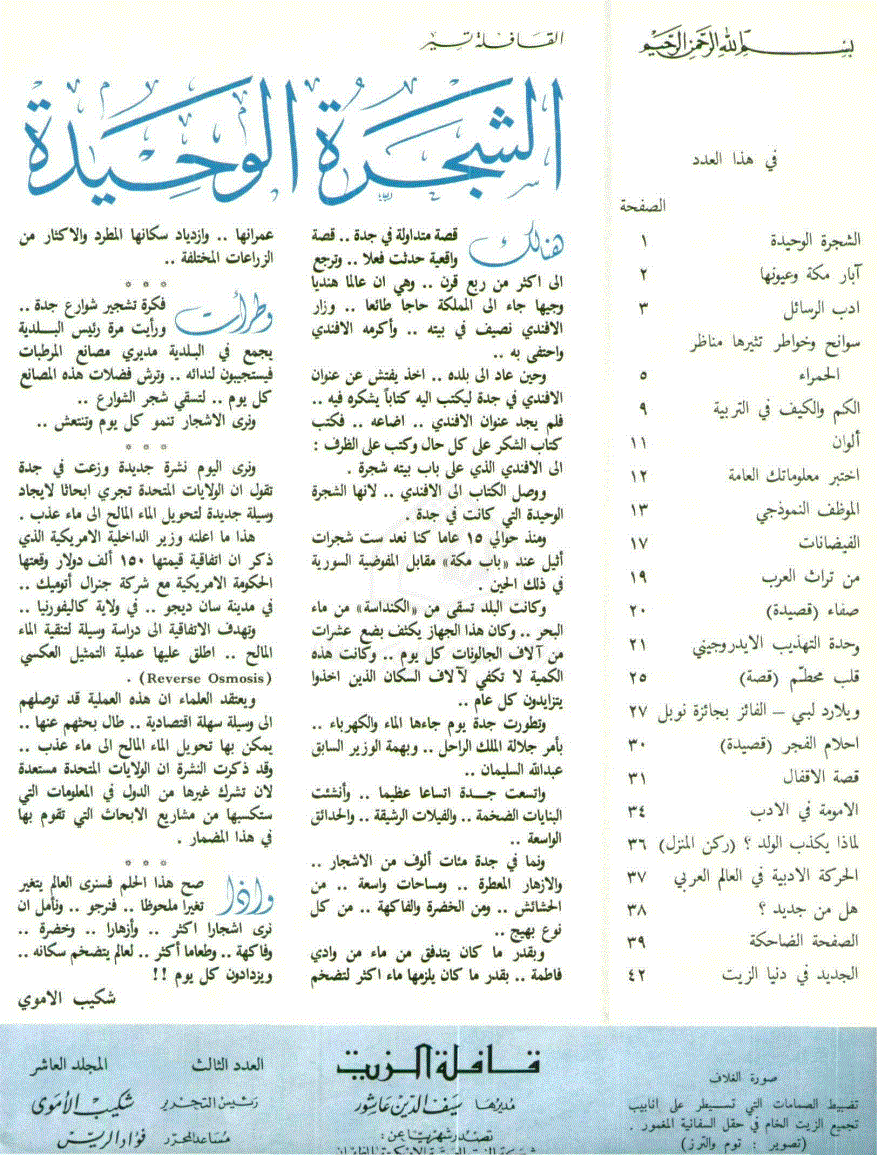 بسم الله الرحمن الرحيم
في هذا العدد
الصفحة
الشجرة الوحيدة ١
آبار مكة وعيونها ٢
ادب الرسائل ٣
سوانح وخواطر تثيرها مناظر
الحمراء ٥
الكم والكيف في التربية ٩
ألوان ١١
اختبر معلوماتك العامة ١٢
الموظف النموذجي ١٣
الفيضانات ١٧
من تراث العرب ١٩
صفاء (قصيدة) ٢٠
وحدة التهذيب الايدروجيني ٢١
قلب محطّم (قصة) ٢٥
ويلارد لبي – الفائز بجائزة نوبل ٢٧
احلام الفجر (قصيدة) ٣٠
قصة الاقفال ٣١
الامومة في الادب ٣٤
لماذا يكذب الولد ؟ (ركن المنزل) ٣٦
الحركة الادبية في العالم العربي ٣٧
هل من جديد ؟ ٣٨
الصفحة الضاحكة ٣٩
الجديد في دنيا الزيت ٤٢
القافلة تسير
الشجرة الوحيدة
هنالك قصة متداولة في جدة .. قصة
واقعية حدثت فعلا .. وترجع
الى اكثر من ربع قرن .. وهي ان عالما هنديا
وجيها جاء الى المملكة حاجا طائعا .. وزار
الافندي نصيف في بيته .. وأكرمه الافندي
واحتفى به ..
وحين عاد الى بلده .. اخذ يفتش عن عنوان
الافندي في جدة ليكتب اليه كتاباً يشكره فيه ..
فلم يجد عنوان الافندي .. اضاعه .. فكتب
كتاب الشكر على كل حال وكتب على الظرف :
الى الافندي الذي على باب بيته شجرة .
ووصل الكتاب الى الافندي .. لانها الشجرة
الوحيدة التي كانت في جدة .
ومنذ حوالي ١٥ عاما كنا نعد ست شجرات
أثيل عند «باب مكة» مقابل المفوضية السورية
في ذلك الحين .
وكانت البلد تسقى من «الكنداسة» من ماء
البحر .. وكان هذا الجهاز يكثف بضع عشرات
من آلاف الجالونات كل يوم .. وكانت هذه
الكمية لا تكفي لآلاف السكان الذين اخذوا
يتزايدون كل عام ..
وتطورت جدة يوم جاءها الماء والكهرباء ..
بأمر جلالة الملك الراحل .. وبهمة الوزير السابق
عبدالله السليمان ..
واتسعت جدة اتساعا عظيما .. وأنشئت
البنايات الضخمة .. والفيلات الرشيقة .. والحدائق
الواسعة ..
ونما في جدة مئات ألوف من الاشجار ..
والازهار المعطرة .. ومساحات واسعة .. من
الحشائش .. ومن الخضرة والفاكهة .. من كل
نوع بهيج ..
وبقدر ما كان يتدفق من ماء من وادي
فاطمة .. بقدر ما كان يلزمها ماء اكثر لتضخم
عمرانها .. وازدياد سكانها المطرد والاكثار من
الزراعات المختلفة ..
* * *
وطرأت فكرة تشجير شوارع جدة ..
ورأيت مرة رئيس البلدية
يجمع في البلدية مديري مصانع المرطبات
فيستجيبون لندائه .. وترش فضلات هذه المصانع
كل يوم .. لتسقي شجر الشوارع ..
ونرى الاشجار تنمو كل يوم وتنتعش ..
* * *
ونرى اليوم نشرة جديدة وزعت في جدة
تقول ان الولايات المتحدة تجري ابحاثا لايجاد
وسيلة جديدة لتحويل الماء المالح الى ماء عذب .
هذا ما اعلنه وزير الداخلية الامريكية الذي
ذكر ان اتفاقية قيمتها ١٥٠ ألف دولار وقعتها
الحكومة الامريكية مع شركة جنرال أتوميك ..
في مدينة سان ديجو .. في ولاية كاليفورنيا ..
وتهدف الاتفاقية الى دراسة وسيلة لتنقية الماء
المالح .. اطلق عليها عملية التمثيل العكسي
(Reverse Osmosis) .
ويعتقد العلماء ان هذه العملية قد توصلهم
الى وسيلة سهلة اقتصادية .. طال بحثهم عنها ..
يمكن بها تحويل الماء المالح الى ماء عذب ..
وقد ذكرت النشرة ان الولايات المتحدة مستعدة
لان تشرك غيرها من الدول في المعلومات التي
ستكسبها من مشاريع الابحاث التي تقوم بها
في هذا المضمار .
* * *
واذا صح هذا الحلم فسنرى العالم يتغير
تغيرا ملحوظا .. فنرجو .. ونأمل ان
نرى اشجارا اكثر .. وأزهارا .. وخضرة ..
وفاكهة .. وطعاما أكثر .. لعالم يتضخم سكانه ..
ويزدادون كل يوم !!
شكيب الاموي
صورة الغلاف
تضبيط الصمامات التي تسيطر على انابيب
تجميع الزيت الخام في حقل السفانية المغمور .
(تصوير : توم والترز)
قافلة الزيت
مديرها سيف الدين عاشور
تصدر شهريا عن :
العدد الثالث المجلد العاشر
رئيس التحرير شكيب الأموي
مساعد المحرر فؤاد الريس